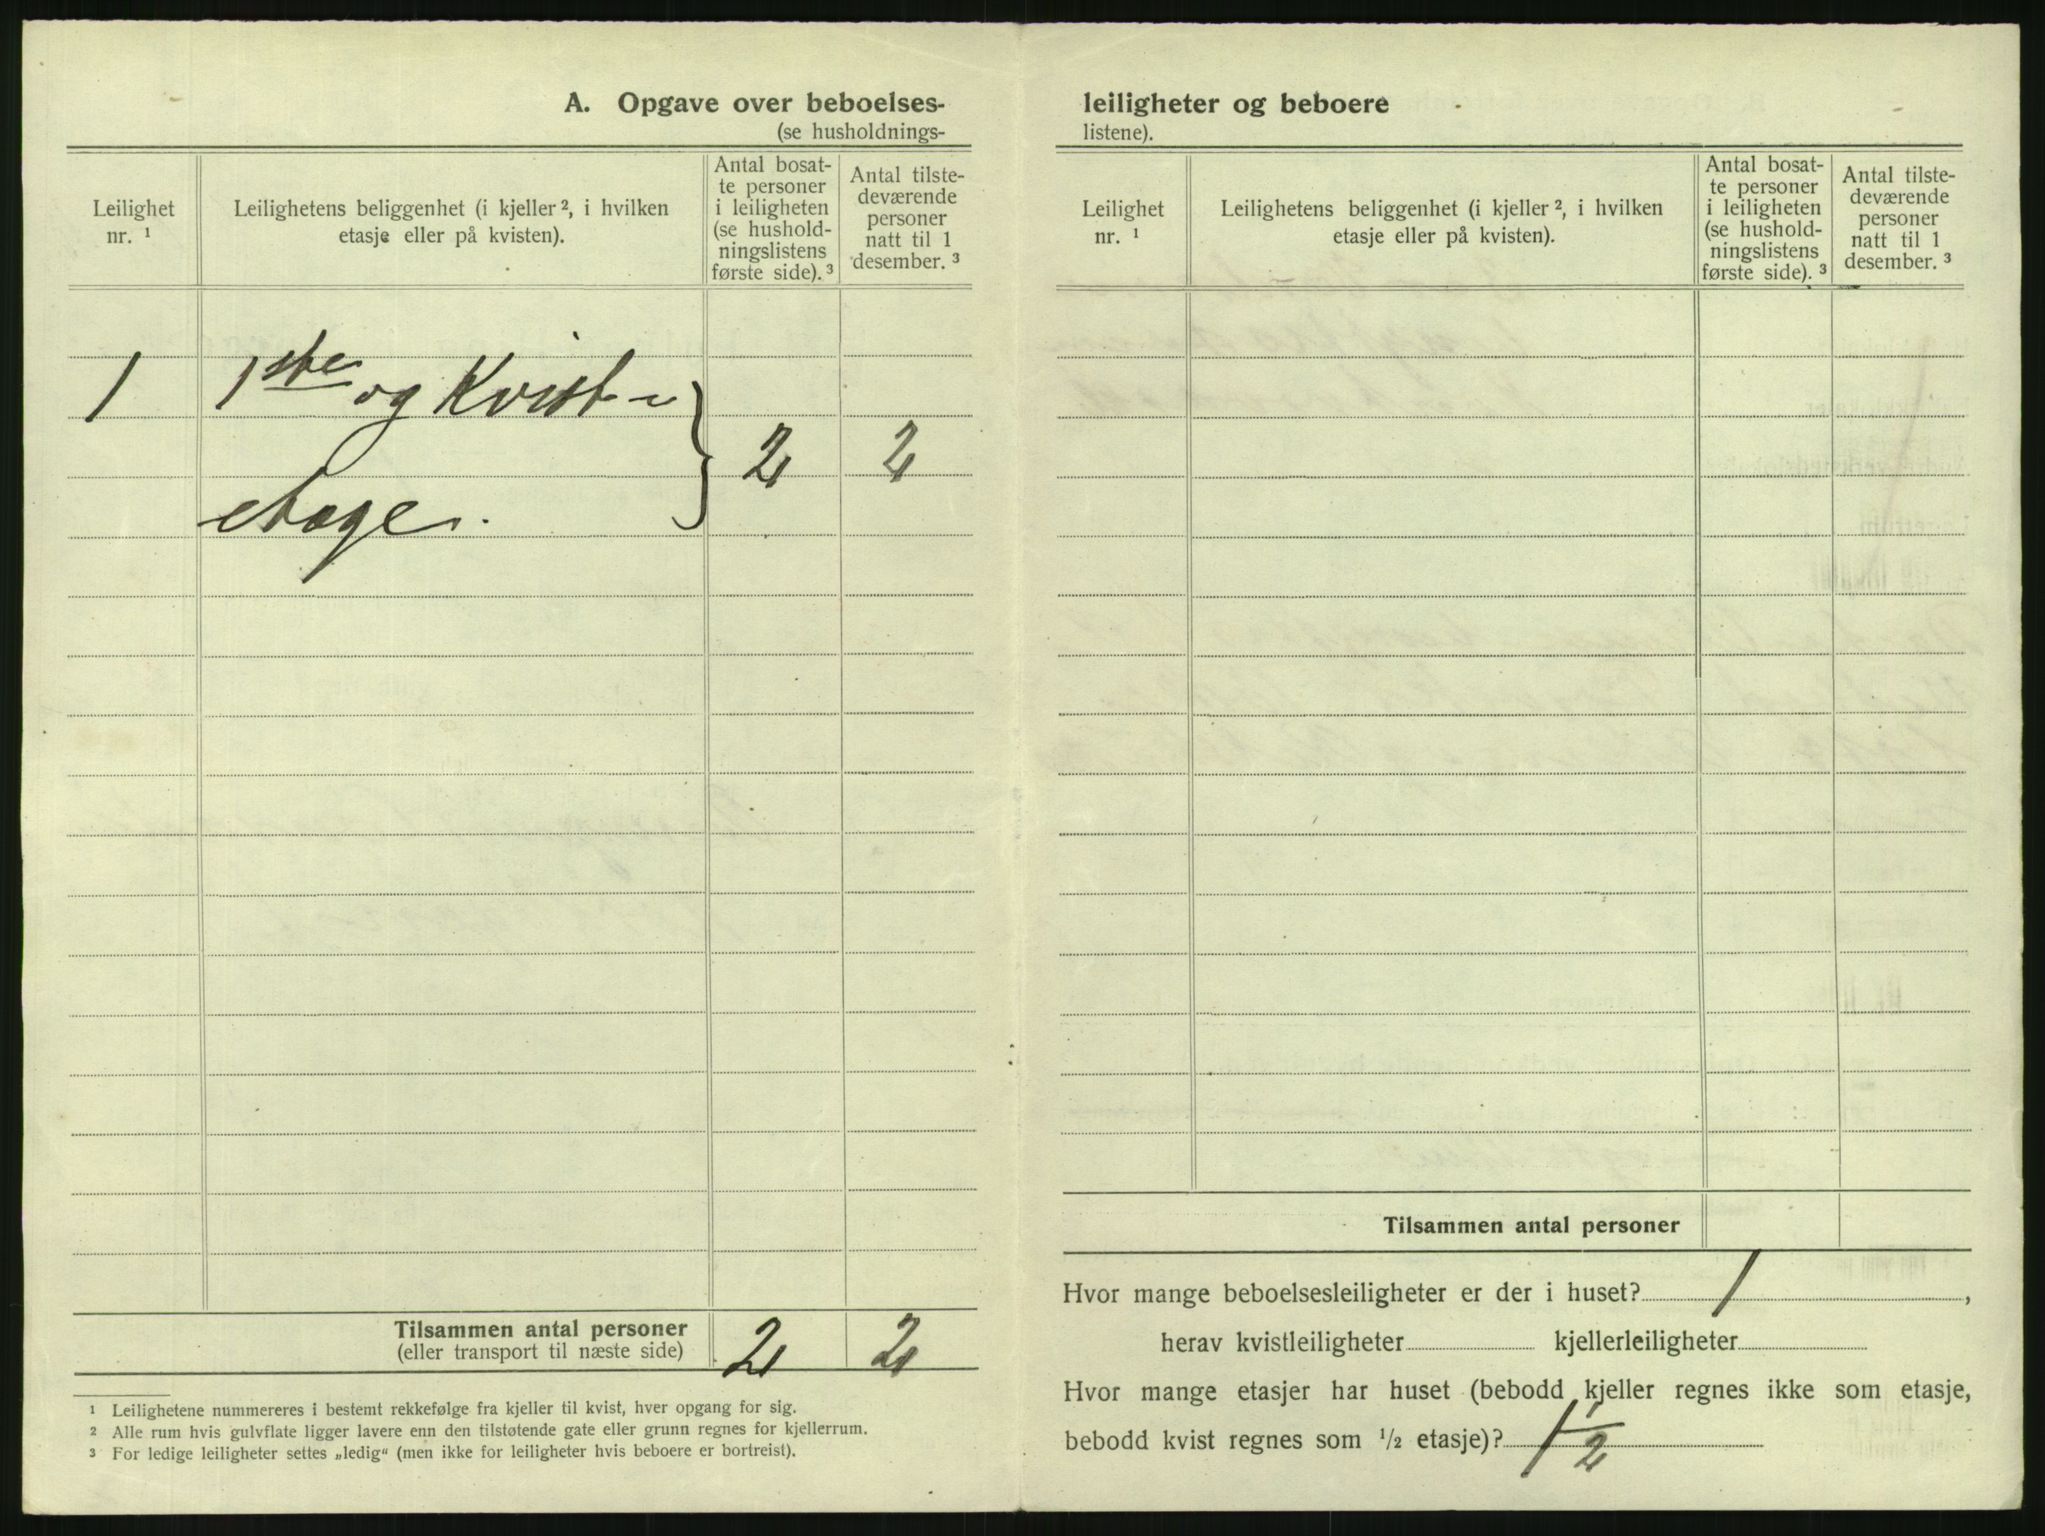 A. Opgave over beboelses-
(se husholdnings-
Leilighet
nr. ¹
Leilighetens beliggenhet (i kjeller ², i hvilken
etasje eller på kvisten).
Antal bosat-
te personer
i leiligheten
(se hushold-
ningslistens
første side). ³
Antal tilste-
deværende
personer
natt til 1
desember. ³
1 1ste og Kvist-
etage.
2 2
Tilsammen antal personer
(eller transport til næste side)
2 2
¹ Leilighetene nummereres i bestemt rekkefølge fra kjeller til kvist, hver opgang for sig.
² Alle rum hvis gulvflate ligger lavere enn den tilstøtende gate eller grunn regnes for kjellerrum.
³ For ledige leiligheter settes „ledig“ (men ikke for leiligheter hvis beboere er bortreist).
leiligheter og beboere
listene).
Leilighet
nr. ¹
Leilighetens beliggenhet (i kjeller ², i hvilken
etasje eller på kvisten).
Antal bosat-
te personer
i leiligheten
(se hushold-
ningslistens
første side). ³
Antal tilste-
deværende
personer
natt til 1
desember. ³
Tilsammen antal personer
Hvor mange beboelsesleiligheter er der i huset? 1,
herav kvistleiligheter kjellerleiligheter
Hvor mange etasjer har huset (bebodd kjeller regnes ikke som etasje,
bebodd kvist regnes som ½ etasje)? 1 ½